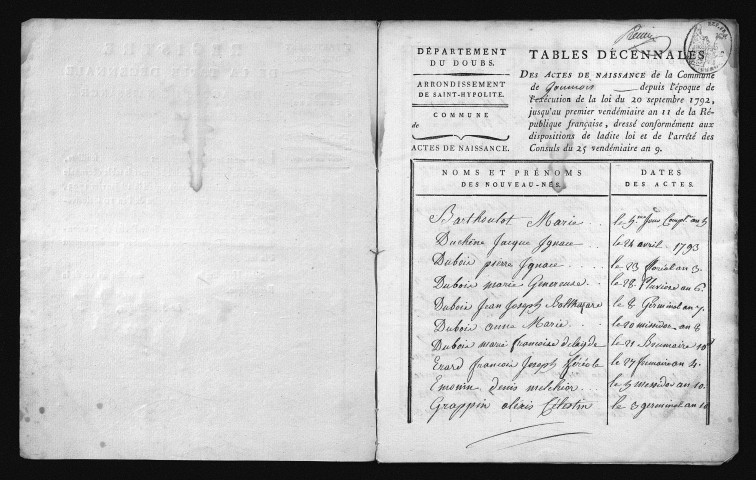 DÉPARTEMENT
DU DOUBS.
ARRONDISSEMENT
DE SAINT-HYPOLITE.
COMMUNE
de
ACTES DE NAISSANCE.
TABLES DÉCENNALES
DES ACTES DE NAISSANCE de la Commune
de Goumois depuis l'époque de
l'exécution de la loi du 20 septembre 1792,
jusqu'au premier vendémiaire an 11 de la Ré-
publique française, dressé conformément aux
dispositions de ladite loi et de l'arrêté des
Consuls du 25 vendémiaire an 9.
NOMS ET PRÉNOMS
DES NOUVEAU-NÉS.
DATES
DES ACTES.
Barthoulot Marie le 5me Jour Compl. an 5
Duchêne Jacque Ignace le 24 avril 1793
Dubois pierre Ignace le 23 floréal an 3
Dubois marie Genereuse le 28 Pluviose an 6
Dubois Jean Joseph Balthazare le 8 Germinal an 7
Dubois anne Marie le 20 messidor an 8
Dubois marie francoise le 21 Brumaire 10
Erard francois Joseph le 27 frimaire an 4
Emonin denis melchior le 5 messidor an 10
Grappin alexis Célestin le 3 germinal an 10